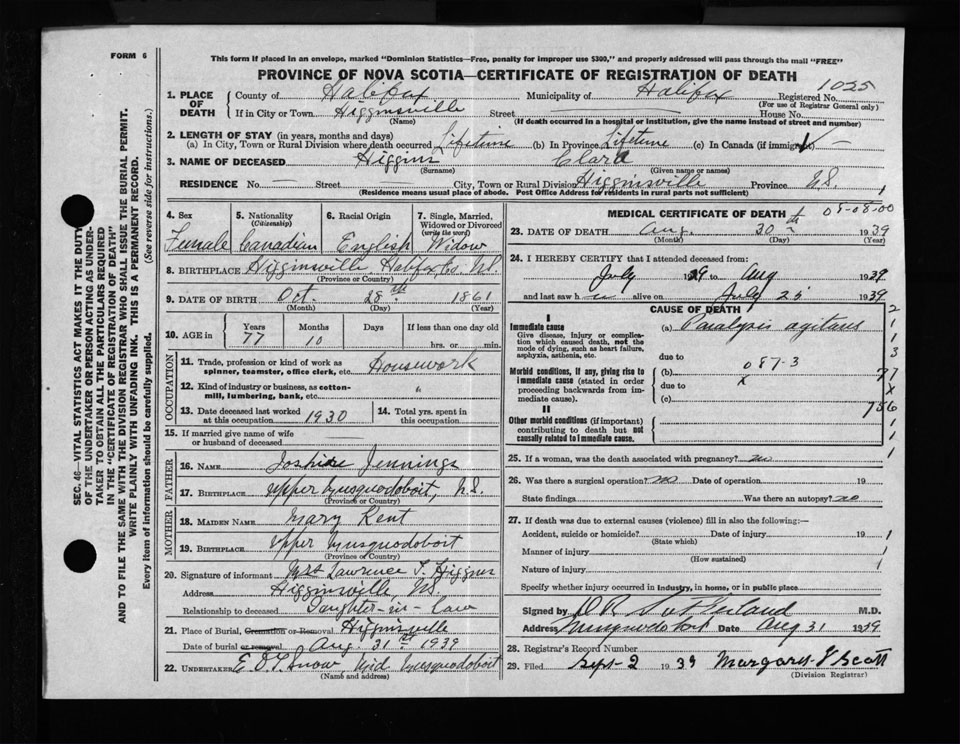 FORM 6
This form if placed in an envelope, marked "Dominion Statistics—Free, penalty for improper use $300," and properly addressed will pass through the mail "FREE"
PROVINCE OF NOVA SCOTIA—CERTIFICATE OF REGISTRATION OF DEATH
1025
1. PLACE OF DEATH
County of Halifax Municipality of Halifax Registered No.
(For use of Registrar General only)
If in City or Town Higginsville Street House No.
(Name) (If death occurred in a hospital or institution, give the name instead of street and number)
2. LENGTH OF STAY (in years, months and days)
(a) In City, Town or Rural Division where death occurred Lifetime (b) In Province Lifetime (c) In Canada (if immigrant) —
3. NAME OF DECEASED Higgins Clara
(Surname) (Given name or names)
RESIDENCE No. — Street City, Town or Rural Division Higginsville Province N.S.
(Residence means usual place of abode. Post Office Address for residents in rural parts not sufficient)
4. Sex
Female
5. Nationality
(Citizenship)
Canadian
6. Racial Origin
English
7. Single, Married, Widowed or Divorced
(write the word)
Widow
8. BIRTHPLACE Higginsville, Halifax Co. N.S.
(Province or Country)
9. DATE OF BIRTH Oct. 28th 1861
(Month) (Day) (Year)
10. AGE in
Years Months Days If less than one day old
77 10 hrs. or min.
OCCUPATION
11. Trade, profession or kind of work as spinner, teamster, office clerk, etc. Housework
12. Kind of industry or business, as cotton-mill, lumbering, bank, etc. "
13. Date deceased last worked at this occupation 1930
14. Total yrs. spent in this occupation
15. If married give name of wife or husband of deceased
FATHER
16. NAME Jennings
17. BIRTHPLACE Upper Musquodoboit, N.S.
(Province or Country)
MOTHER
18. MAIDEN NAME Mary Kent
19. BIRTHPLACE Upper Musquodoboit
(Province or Country)
20. Signature of informant Mrs Lawrence T. Higgins
Address Higginsville, N.S.
Relationship to deceased Daughter-in-law
21. Place of Burial, Cremation or Removal Higginsville
Date of burial or removal Aug. 31st 1939
22. UNDERTAKER Snow, Mid Musquodoboit
(Name and address)
MEDICAL CERTIFICATE OF DEATH
08-08-00
23. DATE OF DEATH Aug. 30th 1939
(Month) (Day) (Year)
24. I HEREBY CERTIFY that I attended deceased from:
July 1939 to Aug 1939
and last saw h alive on July 25 1939
CAUSE OF DEATH
I
Immediate cause
Give disease, injury or complication which caused death, not the mode of dying, such as heart failure, asphyxia, asthenia, etc.
(a) Paralysis agitans
due to
Morbid conditions, if any, giving rise to immediate cause (stated in order proceeding backwards from immediate cause).
(b) 087-3
x
due to
(c)
II
Other morbid conditions (if important) contributing to death but not causally related to immediate cause.
2
1
1
3
77
x
756
1
1
25. If a woman, was the death associated with pregnancy? no
26. Was there a surgical operation? no Date of operation 19
State findings Was there an autopsy? no
27. If death was due to external causes (violence) fill in also the following:—
Accident, suicide or homicide? Date of injury 19
(State which)
Manner of injury
(How sustained)
Nature of injury
Specify whether injury occurred in industry, in home, or in public place
1
1
1
Signed by D R Sutherland M.D.
Address Musquodoboit Date Aug 31 1939
28. Registrar's Record Number
29. Filed Sept-2 1939 Margaret J Scott
(Division Registrar)
SEC. 46—VITAL STATISTICS ACT MAKES IT THE DUTY
OF THE UNDERTAKER OR PERSON ACTING AS UNDER-
TAKER TO OBTAIN ALL THE PARTICULARS REQUIRED
IN THE "CERTIFICATE OF REGISTRATION OF DEATH"
AND TO FILE THE SAME WITH THE DIVISION REGISTRAR WHO SHALL ISSUE THE BURIAL PERMIT.
WRITE PLAINLY WITH UNFADING INK. THIS IS A PERMANENT RECORD.
Every item of information should be carefully supplied. (See reverse side for instructions.)